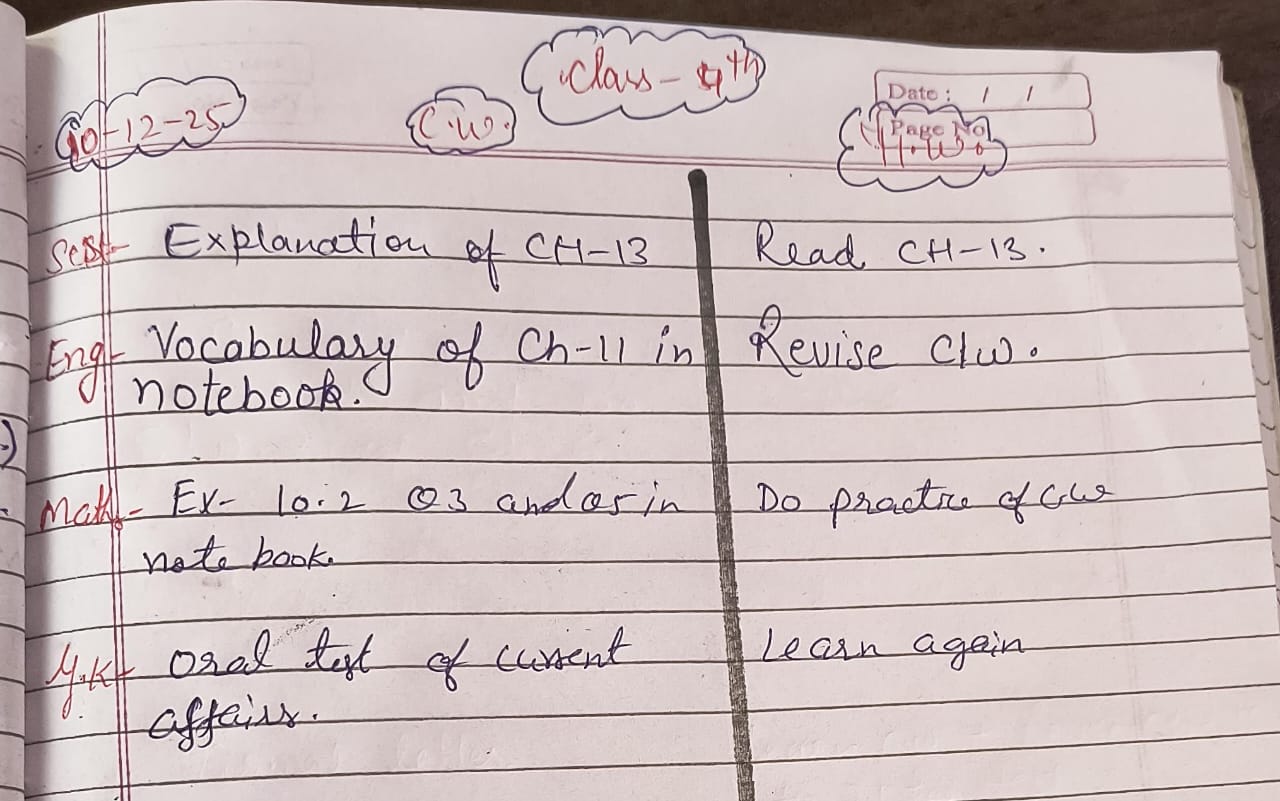 Class - 4th
Date : / /
Page No.
10-12-25
C.W.
H.W.
Explanation of CH-13
Read CH-13.
Eng- Vocabulary of Ch-11 in
notebook.
Revise C/w.
Math- Ex- 10.2 Q3 and Q5 in
note book.
Do practice of C.W
G.K- Oral test of current
affairs.
Learn again